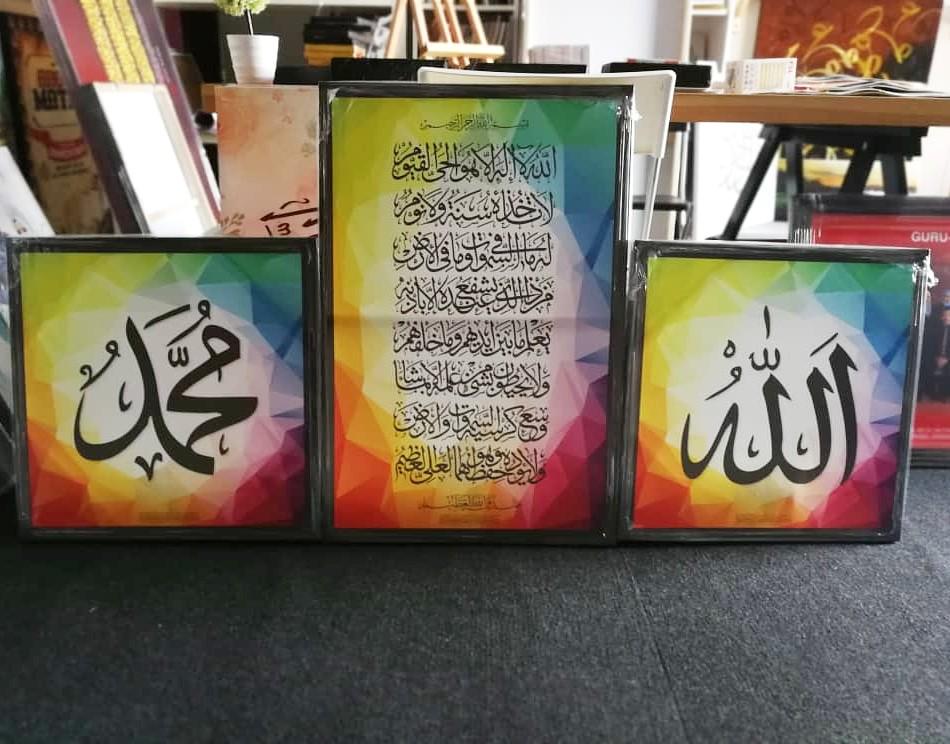 محمد
بسم الله الرحمن الرحيم
الله لا إله إلا هو الحي القيوم
لا تأخذه سنة ولا نوم
له ما في السموات وما في الأرض
من ذا الذي يشفع عنده إلا بإذنه
يعلم ما بين أيديهم وما خلفهم
ولا يحيطون بشيء من علمه إلا بما شاء
وسع كرسيه السموات والأرض
ولا يؤده حفظهما وهو العلي العظيم
صدق الله العظيم
الله
GURU-